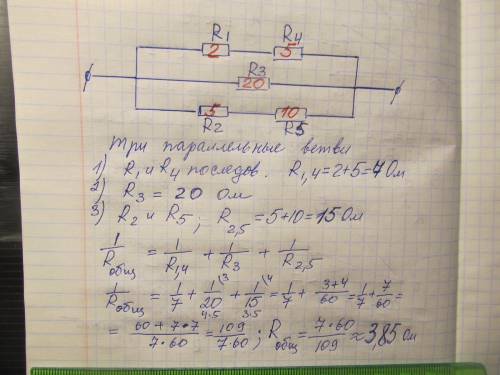 R1 R4
2 5
R3
20
5 10
R2 R5
Три параллельные ветви
1) R1 и R4 последов. R1,4 = 2+5 = 7 Ом
2) R3 = 20 Ом
3) R2 и R5 ; R2,5 = 5+10 = 15 Ом
1/Rобщ = 1/R1,4 + 1/R3 + 1/R2,5
1/Rобщ = 1/7 + 1/20 (3 + 1/15 (4 = 1/7 + 3+4/60 = 1/7 + 7/60 =
4·5 3·5
= 60+7·7/7·60 = 109/7·60 ; Rобщ = 7·60/109 ≈ 3,85 Ом